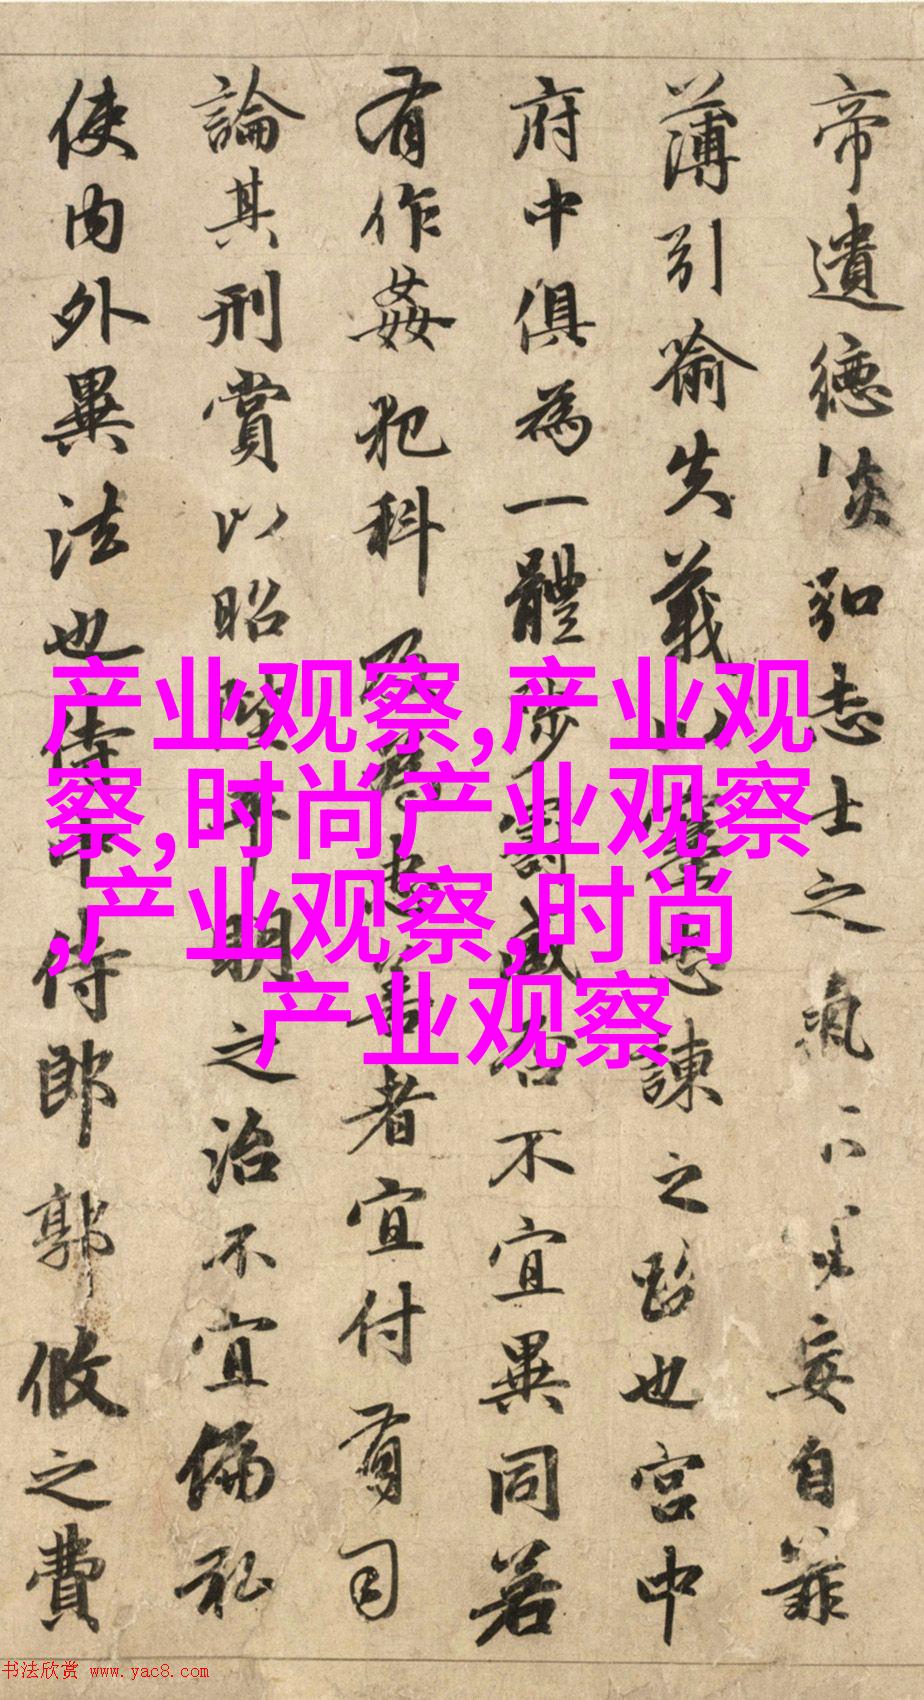 帝遺德恢弘志士之氣不妄自菲
薄引喻失義以塞忠諫之路也宮中
府中俱為一體陟罰臧否不宜異同若
有作姦犯科及為忠善者宜付有司
論其刑賞以昭陛平明之治不宜偏私
使內外異法也侍中侍郎郭攸之費
产业观察,产业观
察,时尚产业观察
,产业观察,时尚
产业观察
书法欣赏 www.yac8.com